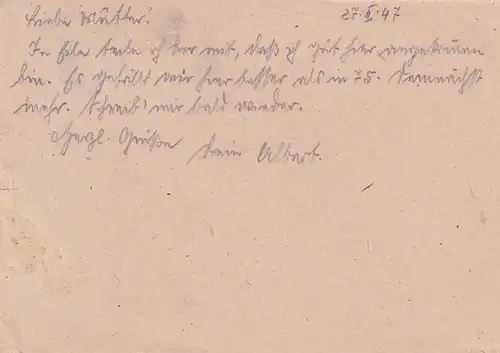 Liebe Mutter! 27.II.47
In Eile teile ich Dir mit, daß ich gut hier angekommen
bin. Es gefällt mir hier besser als in 75. Demnächst
mehr. Schreib' mir bald wieder.
Herzl. Grüße Dein Albert.